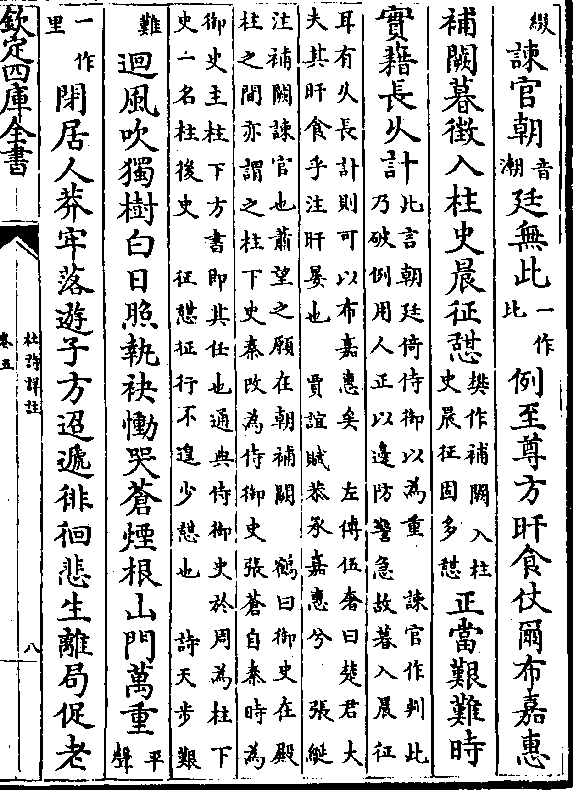 綴諫官朝音潮廷無此一作比例至尊方旰食仗爾布嘉惠
補闕暮徵入柱史晨征憩樊作補闕入柱史晨征固多憩正當艱難時
實藉長久計此言朝廷倚侍御以為重 諫官作判此
乃破例用人正以邊防警急故暮入晨征
耳有久長計則可以布嘉惠矣 左傳伍奢曰楚君大
夫其旰食乎注旰晏也 賈誼賦恭承嘉惠兮 張綖
注補闕諫官也蕭望之願在朝補闕 鶴曰御史在殿
柱之間亦謂之柱下史秦改為侍御史張蒼自秦時為
御史主柱下方書即其任也通典侍御史於周為柱下
史一名柱後史 征憩征行不遑少憩也 詩天步艱
難迴風吹獨樹白日照執袂慟哭蒼煙根山門萬重平聲
一作里閉居人莽牢落遊子方迢遞徘徊悲生離局促老
欽定四庫全書
杜詩詳註
卷五
八